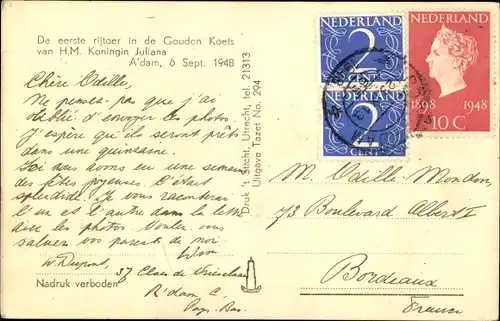 De eerste rijtoer in de Gouden Koets
van H.M. Koningin Juliana
A'dam, 6 Sept. 1948
Chère Odille,
Ne pensez pas que j'ai
oublié d'envoyer les photos.
J'espère que ils seront prêts
dans une quinzaine.
Ici nous avons eu une semaine
des fêtes joyeuses. C'était
splendide. Je vous raconterai
l'un et l'autre dans la lettre
avec les photos. Voulez vous
saluer vos parents de moi.
Wim
W. Dupont,
37 Claes de Vrieselaan
R'dam C.
Pays-Bas.
Nadruk verboden
Druk 't Sticht, Utrecht, tel. 21313
Uitgave Tazet No. 294
NEDERLAND
2
CENT
NEDERLAND
2
CENT
NEDERLAND
1898 1948
10 C
M. Odille Mondon,
73 Boulevard Albert I
Bordeaux
France